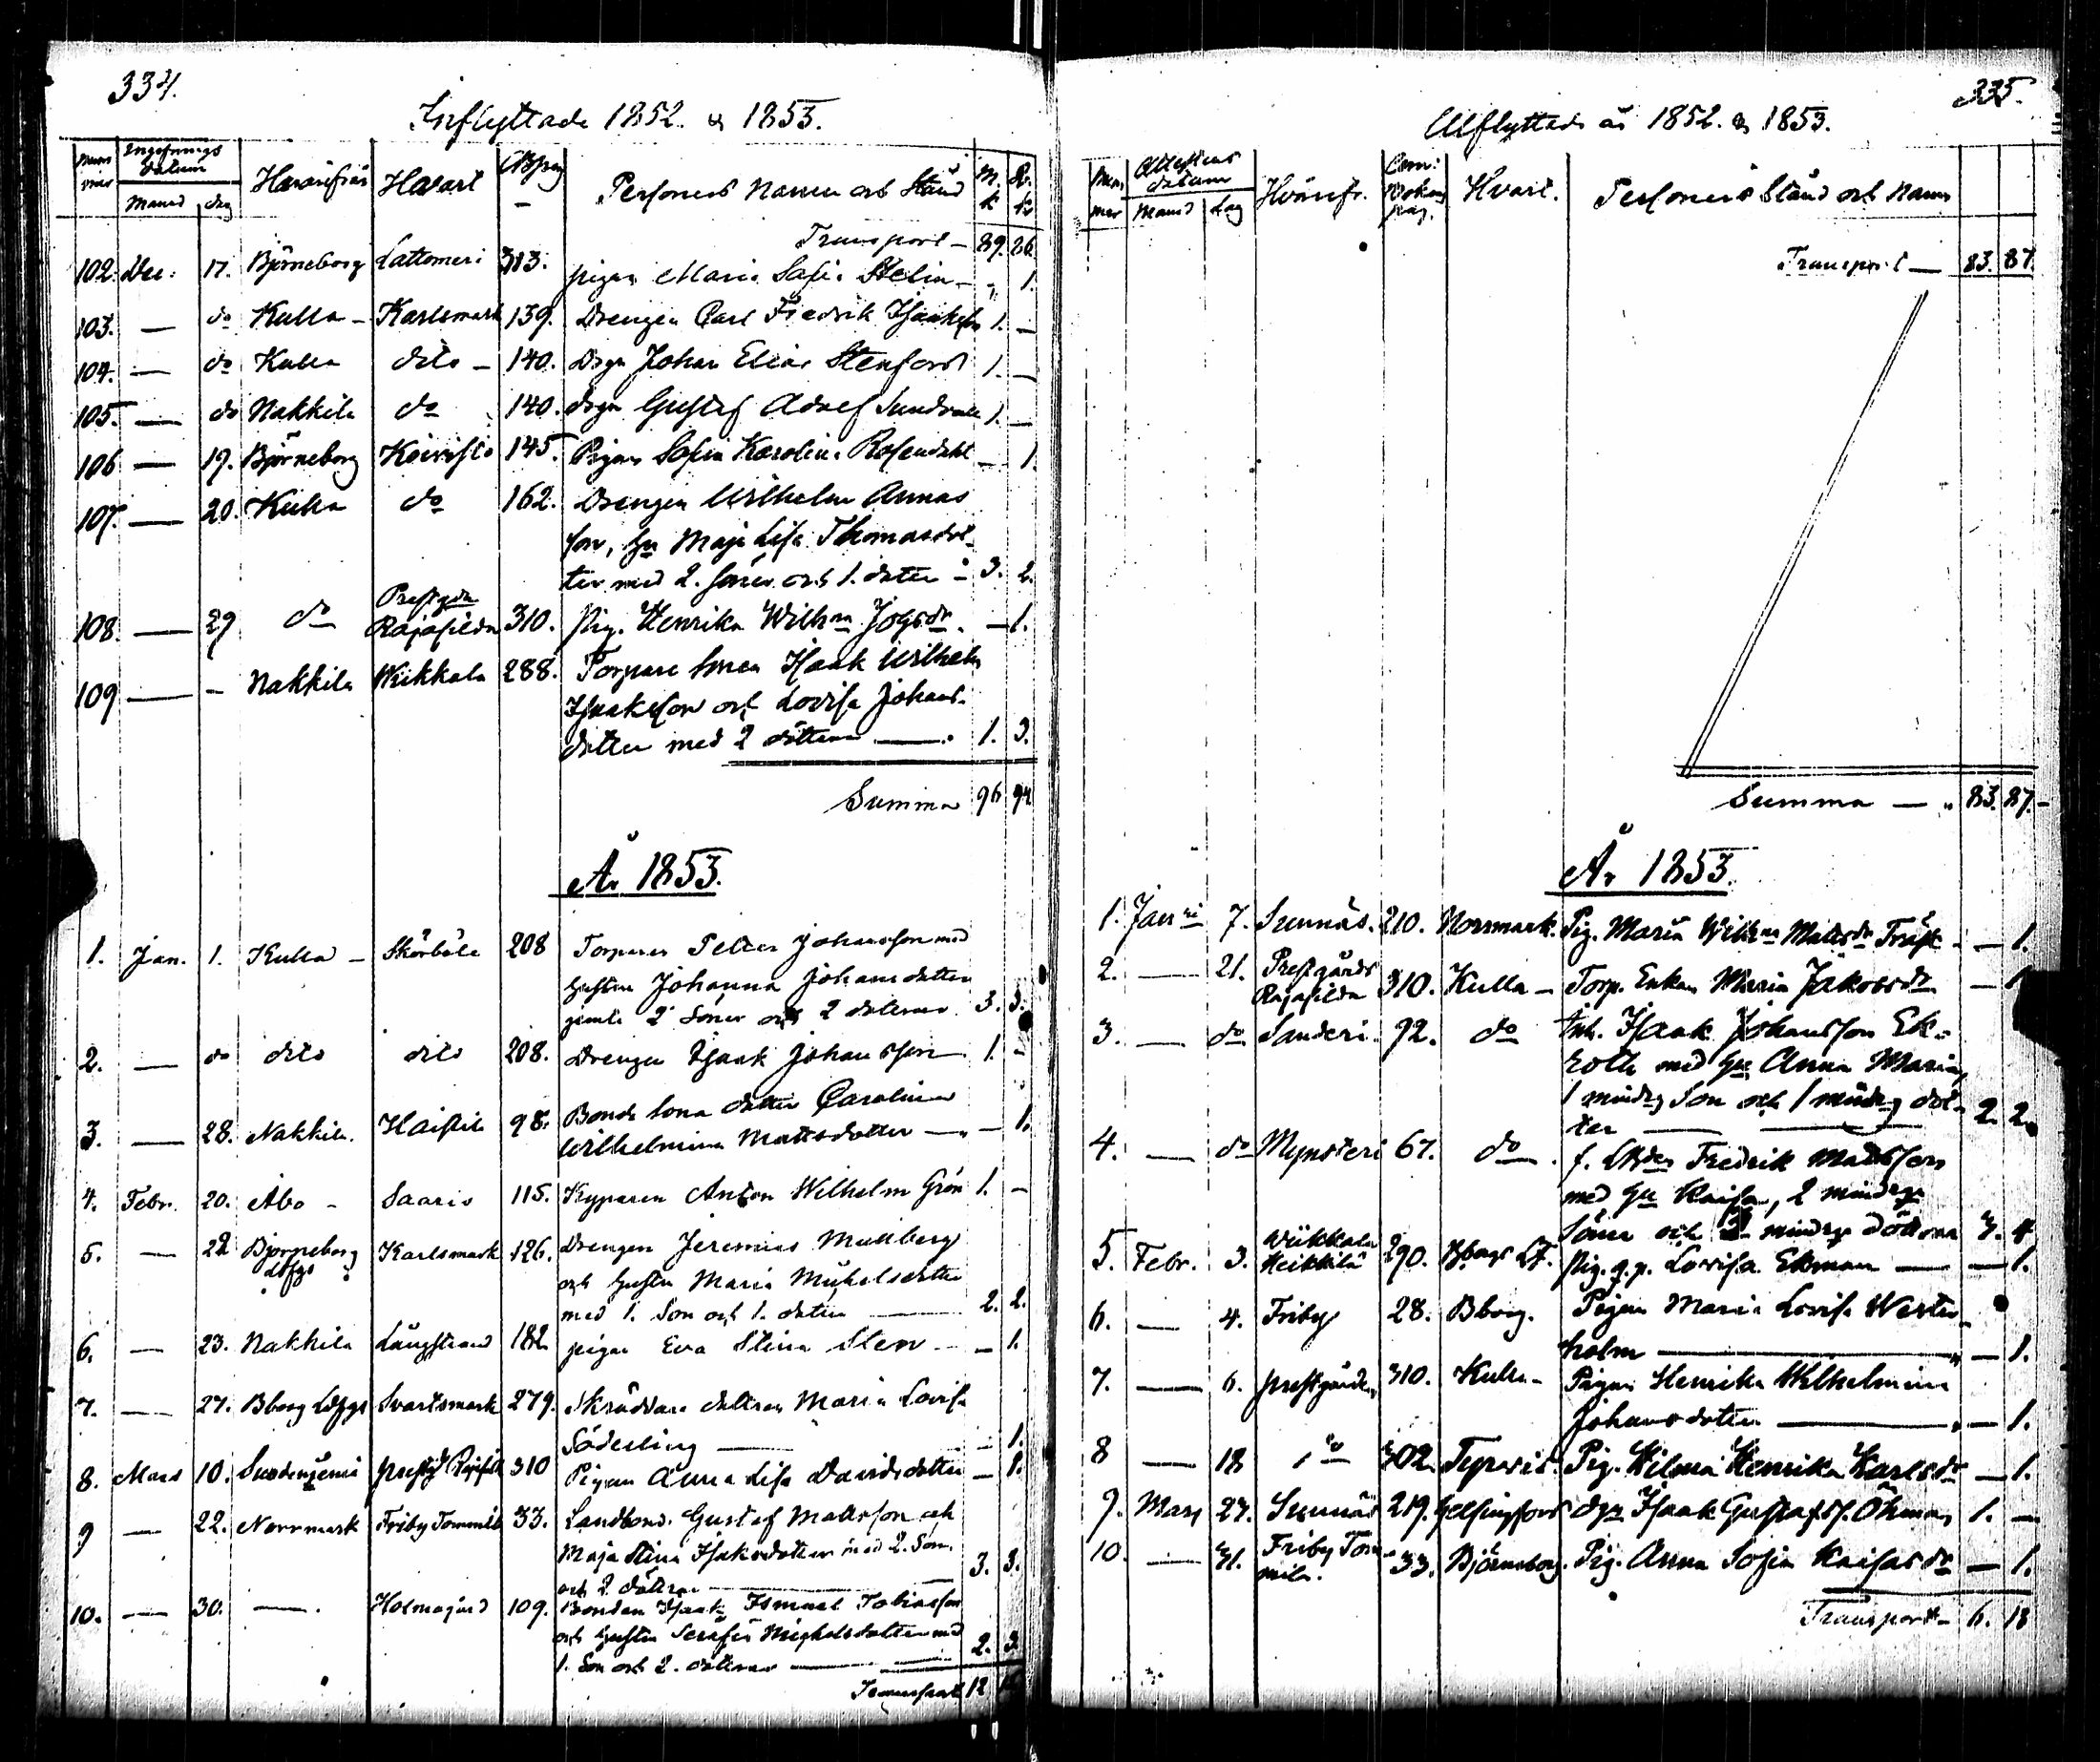 334.
Inflyttade 1852. & 1853.
Num mer Ingifnings datum Hvarifrån Hvart Personers Namn och Stånd M. k Q. k
Månad dag
Transport — 89. 86.
102. Dec: 17. Björneborg Lattomeri 313. pigan Maria Sofia Helin — „ 1.
103. — do Kulla — Karlsmark 139. Drengen Carl Fredrik Isaaksson 1. —
104. — do Kulla dito — 140. Drgn Johan Elias Stenfors 1. —
105. — do Nakkila do 140. drgn Gustaf Adolf Sundvall 1. —
106 — 19. Björneborg Koivisto 145. Pigan Sofia Karolina Rosendahl — 1.
107. — 20. Kulla do 162. Drengen Wilhelm Annas
son, hu Maja Lisa Thomasdot-
ter med 2. söner och 1. dotter — 3. 2.
Prestgdn
108. — 29 do Rajasilda 310. Pig. Henrika Wilhna Johsdr. — 1.
109 — — Nakkila Wiikkala 288. Torpare sonen Isaak Wilhelm
Isaaksson och Lovisa Johans-
dotter med 2 döttrar — 1. 3.
Summa 96 94
År 1853.
1. Jan. 1. Kulla — Skörböle 208 Torparen Petter Johansson med
hustru Johanna Johansdotter
jemte 2 Söner och 2 döttrar 3. 3.
2. — do dito dito 208. Drengen Isaak Johansson 1. —
3. — 28. Nakkila. Haistila 98. Bonde sona dotter Carolina
Wilhelmina Mattsdotter — — 1.
4. Febr. 20. Åbo — Saaris 115. Kyparen Anton Wilhelm Grön 1. —
5. — 22 Björneborg Karlsmark 126. Drengen Jeremias Mullberg
ldsfgs och hustru Maria Mickelsdotter
med 1. Son och 1. dotter — 2. 2.
6. — 23. Nakkila Långstrand 182 pigan Eva Stina Sten — — 1.
7. — 27. Bborg Ldsfgs Svartsmark 279. Skräddare dottren Maria Lovisa
Söderling — — 1.
8. Mars 10. Suodenjemi 310 Pigan Anna Lisa Davidsdotter — 1.
9 — 22. Norrmark Friby Tommila 33. Landbond. Gustaf Mattsson och
Maja Stina Isaksdotter med 2. Sön.
och 2 döttrar — 3. 3.
10. — 30. — Holmagård 109. Bonden Isaak Ismael Tobiasson
och hustru Serafia Michelsdotter med
1. Son och 2. döttrar — 2. 3.
Transport 12
335.
Utflyttade år 1852. & 1853.
Num mer Attestens datum Hvarifr. Com: bokens pag. Hvart. Personers Stånd och Namn
Månad Dag
Transport — 83. 87.
Summa — „ 83. 87. —
År 1853.
1. Janri 7. Sunnäs. 210. Norrmark. Pig. Maria Wilhna Mattsdr Träsk — — 1.
2. — 21. Prestgårds Rajasilda 310. Kulla — Torp. Enkan Maria Jakobsdr — 1
3. — do Sanderi 92. do Inh. Isaak Johansson Ek-
roth med hu Anna Maria,
1 mindrg Son och 1 mindrg dot-
ter — 2. 2.
4. — do Mynsteri 67. do f. Fredrik Mattsson
med hu Kaisa, 2 mindrge
söner och mindrge döttrar 3. 4
5. Febr. 3. Wiikkala Heikkilä 290. Bborgs Lf. Pig. g.p. Lovisa Ekman — — 1.
6. — 4. Friby 28. Bborg. Pigan Maria Lovisa Wester-
holm — — 1.
7. — 6. prestgården 310. Kulla — Pigan Henrika Wilhelmina
Johansdotter — — 1.
8 — 18 do 302. Tyrvis Pig. Wilma Henrika Karlsdr — 1.
9. Mars 27. Sunnäs 219. Helsingfors drgn Isaak Gustafss. Öhman 1. —
10. — 31. Friby Tom-mila. 33. Björneborg. Pig. Anna Sofia Kaisasdr — 1.
Transport — 6. 13